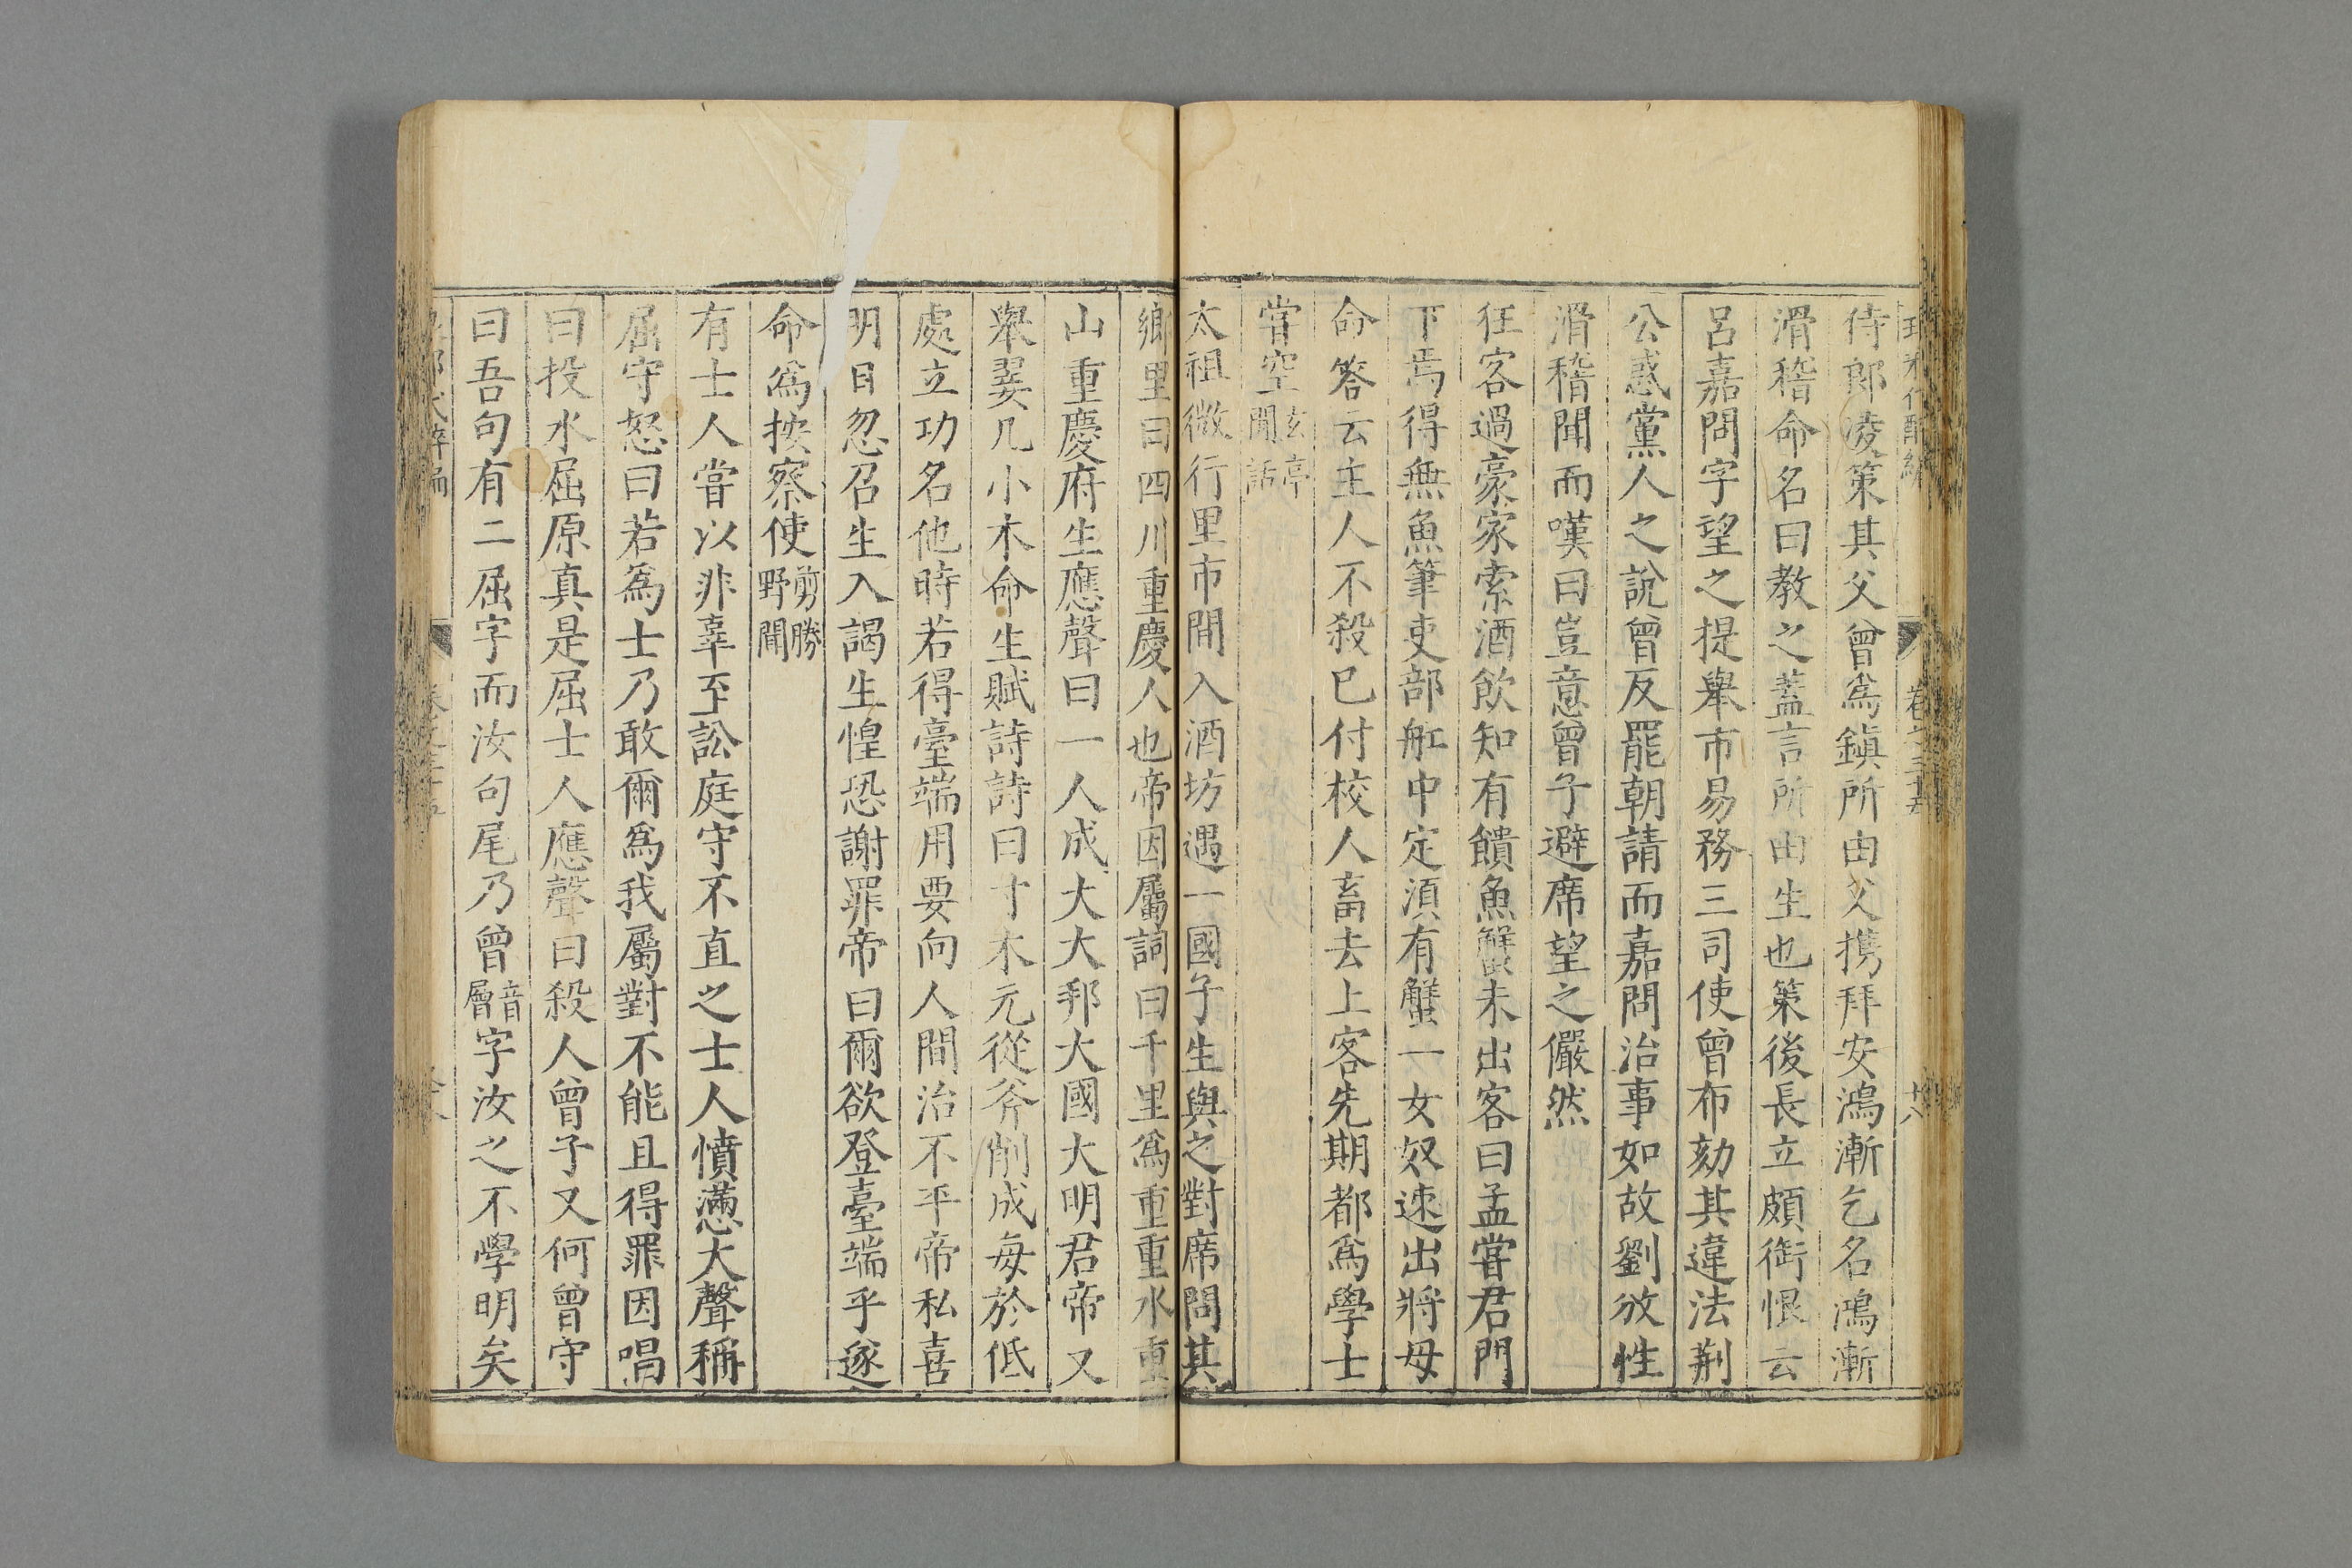 侍郎凌策其父曾爲鎮所由父携拜安鴻漸乞名鴻漸
滑稽命名曰教之蓋言所由生也策後長立頗銜恨云
呂嘉問字望之提舉市易務三司使曾布劾其違法荆
公惑黨人之說曾反罷朝請而嘉問治事如故劉攽性
滑稽聞而嘆曰豈意曾子避席望之儼然
狂客過豪家索酒飲知有饋魚蟹未出客曰孟嘗君門
下焉得無魚筆吏部舡中定湏有蟹一女奴速出將母
命答云主人不殺已付校人畜去上客先期都爲學士
嘗空玄亭閒話
太祖微行里市間入酒坊遇一國子生與之對席問其
鄉里曰四川重慶人也帝因屬詞曰千里爲重重水重
山重慶府生應聲曰一人成大大邦大國大明君帝又
舉翣几小木命生賦詩詩曰寸木元從斧削成每於低
處立功名他時若得臺端用要向人間治不平帝私喜
明日忽召生入謁生惶恐謝罪帝曰爾欲登臺端乎遂
命爲按察使剪勝野聞
有士人嘗以非辜至訟庭守不直之士人憤懣大聲稱
屈守怒曰若爲士乃敢爾爲我屬對不能且得罪因唱
曰投水屈原真是屈士人應聲曰殺人曾子又何曾守
曰吾句有二屈字而汝句尾乃曾音層字汝之不學明矣